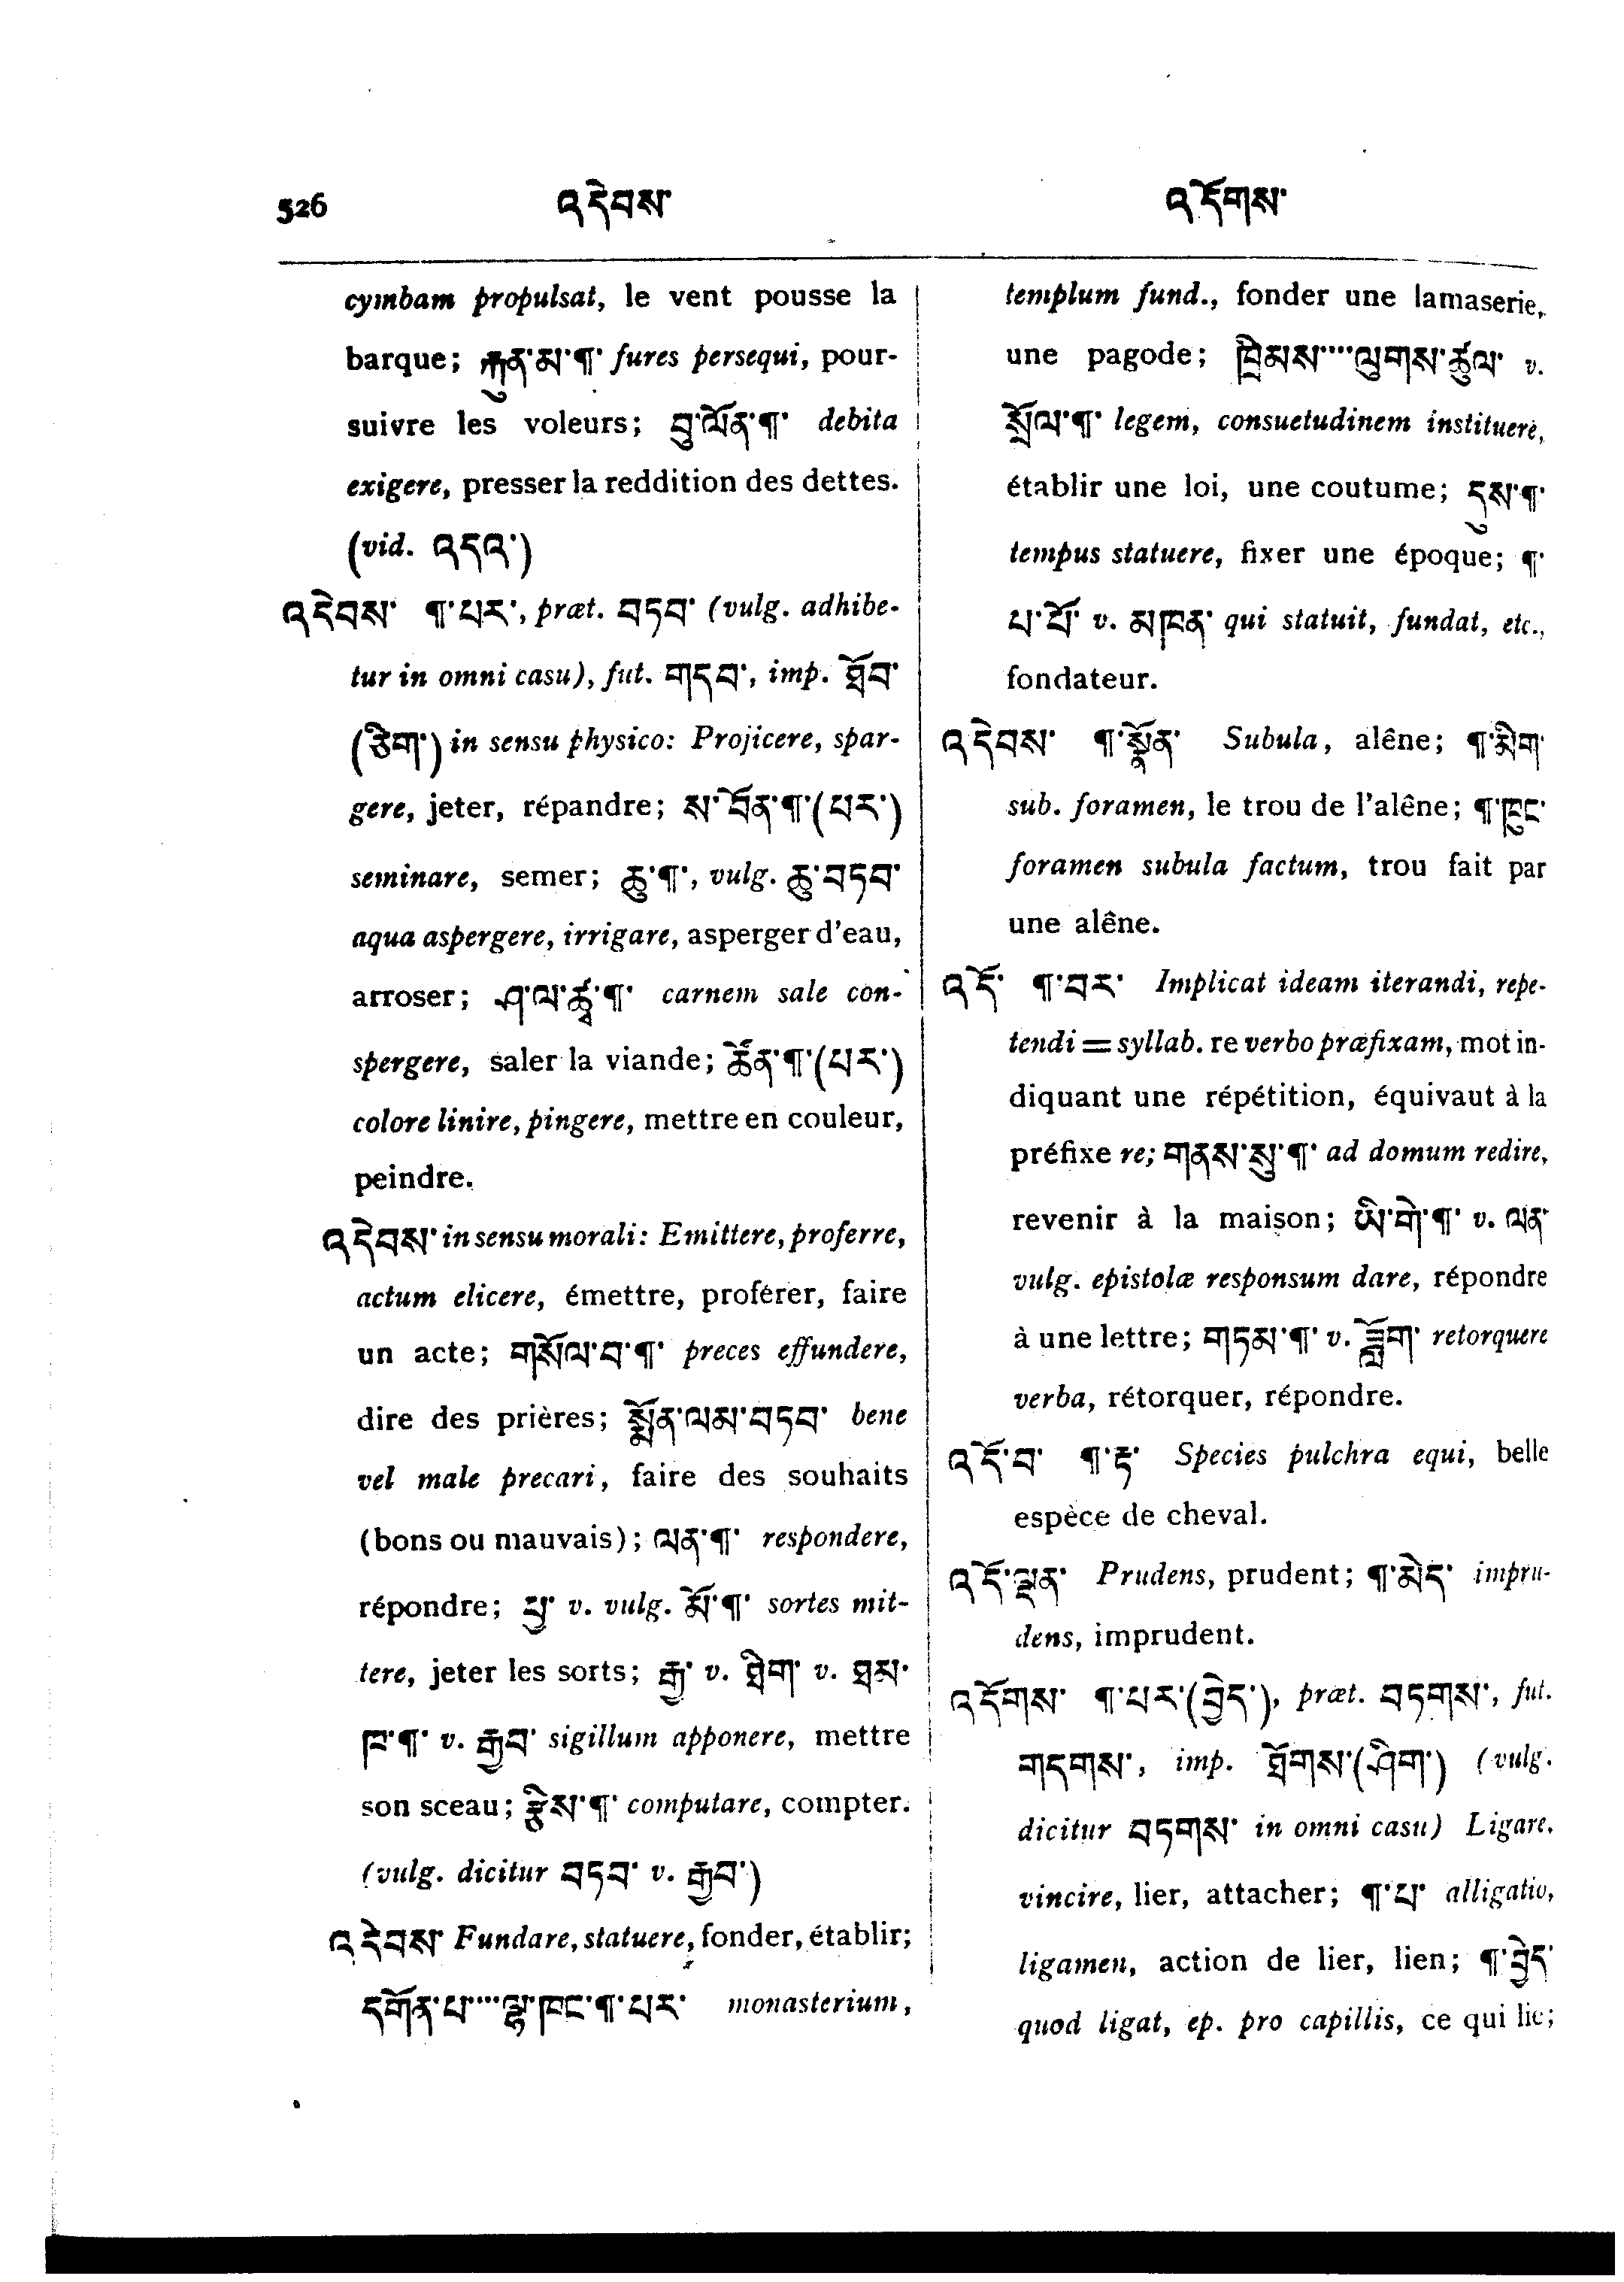 526 འདེབས་ འདོགས་
cymbam propulsat, le vent pousse la
barque; རྐུན་མ་¶་ fures persequi, pour-
suivre les voleurs; བུ་ལོན་¶་ debita
exigere, presser la reddition des dettes.
(vid. འདའ་)
འདེབས་ ¶་པར་, præt. བཏབ་ (vulg. adhibe-
tur in omni casu), fut. གདབ་, imp. ཐོབ་
(ཅིག་) in sensu physico: Projicere, spar-
gere, jeter, répandre; ས་བོན་¶་(པར་)
seminare, semer; ཆུ་¶་, vulg. ཆུ་བཏབ་
aqua aspergere, irrigare, asperger d'eau,
arroser; ཤ་ལ་ཚྭ་¶་ carnem sale con-
spergere, saler la viande; ཚོན་¶་(པར་)
colore linire, pingere, mettre en couleur,
peindre.
འདེབས་ in sensu morali: Emittere, proferre,
actum elicere, émettre, proférer, faire
un acte; གསོལ་བ་¶་ preces effundere,
dire des prières; སྨོན་ལམ་བཏབ་ bene
vel male precari, faire des souhaits
(bons ou mauvais); ལན་¶་ respondere,
répondre; ཕྱ་ v. vulg. མོ་¶་ sortes mit-
tere, jeter les sorts; རྒྱ་ v. ཐིག་ v. ཐམ་
ཁ་¶་ v. རྒྱབ་ sigillum apponere, mettre
son sceau; རྩིས་¶་ computare, compter.
(vulg. dicitur བཏབ་ v. རྒྱབ་)
འདེབས་ Fundare, statuere, fonder, établir;
དགོན་པ་····ལྷ་ཁང་¶་པར་ monasterium,
templum fund., fonder une lamaserie,
une pagode; ཁྲིམས་····ལུགས་ཚུལ་ v.
སྲོལ་¶་ legem, consuetudinem instituere,
établir une loi, une coutume; དུས་¶་
tempus statuere, fixer une époque; ¶་
པ་པོ་ v. མཁན་ qui statuit, fundat, etc.,
fondateur.
འདེབས་ ¶་སྣོན་ Subula, alêne; ¶་མིག་
sub. foramen, le trou de l'alêne; ¶་ཁུང་
foramen subula factum, trou fait par
une alêne.
འདོ་ ¶་བར་ Implicat ideam iterandi, repe-
tendi = syllab. re verbo præfixam, mot in-
diquant une répétition, équivaut à la
préfixe re; གནས་སུ་¶་ ad domum redire,
revenir à la maison; ཡི་གེ་¶་ v. ལན་
vulg. epistolæ responsum dare, répondre
à une lettre; གཏམ་¶་ v. ཟློག་ retorquere
verba, rétorquer, répondre.
འདོ་བ་ ¶་རྟ་ Species pulchra equi, belle
espèce de cheval.
འདོ་ལྡན་ Prudens, prudent; ¶་མེད་ impru-
dens, imprudent.
འདོགས་ ¶་པར་(བྱེད་), præt. བཏགས་, fut.
གདགས་, imp. ཐོགས་(ཤིག་) (vulg.
dicitur བཏགས་ in omni casu) Ligare,
vincire, lier, attacher; ¶་པ་ alligatio,
ligamen, action de lier, lien; ¶་བྱེད་
quod ligat, ep. pro capillis, ce qui lie;